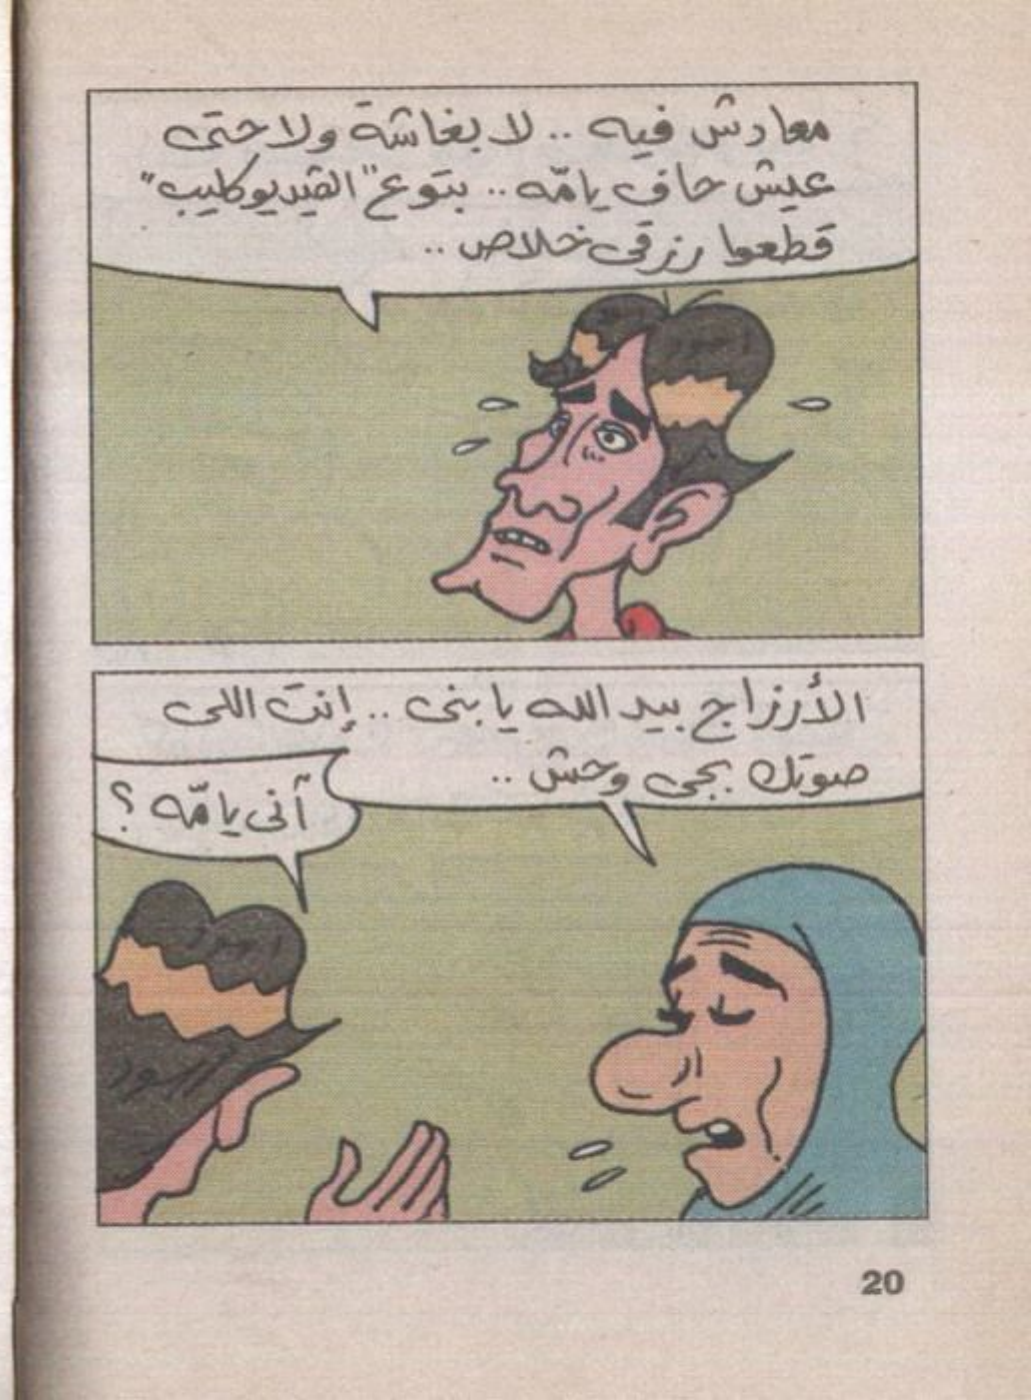 معادش فيه .. لا بغاشة ولا حتى
عيش حاف يامّه .. بتوع "الڤيديو كليب"
قطعوا رزقى خلاص ..
الأرزاج بيد الله يا بنى .. إنت اللى
صوتك بجى وحش ..
آنى يامّه ؟
20